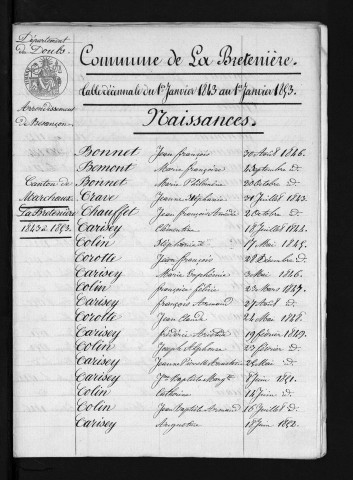 Département
du Doubs
Arrondissement
de Besançon
Canton de
Marchaux
La Bretenière
1843 à 1853.
Commune de La Bretenière.
Table décennale du 1er Janvier 1843 au 1er Janvier 1853.
Naissances.
Bonnet Jean françois 30 Avril 1846.
Bemont Marie françoise 4 Septembre d°
Bonnet Marie Philomène 20 Octobre d°
Crave Jeanne Stéphanie 31 Juillet 1843.
Chauffet Jean françois 2 Octobre d°
Carisey Clémentine 18 Juillet 1844.
Colin Stéphanie 17 Mai 1845.
Corotte Jean françois 28 Décembre d°
Carisey Marie Euphémie 3 Mai 1846.
Colin françois 23 Mars 1847.
Carisey françois Armand 27 Avril d°
Corotte Jean Claude 24 Mai 1848.
Carisey frédéric Aristide 19 février 1849.
Colin Joseph Alphonse 23 février d°
Carisey Jeanne 22 Mai d°
Carisey Jn Baptiste 8 Juin 1851.
Colin Catherine 14 Juin d°
Colin Jean Baptiste Armand 16 Juillet d°
Carisey Augustin 18 Juin 1852.